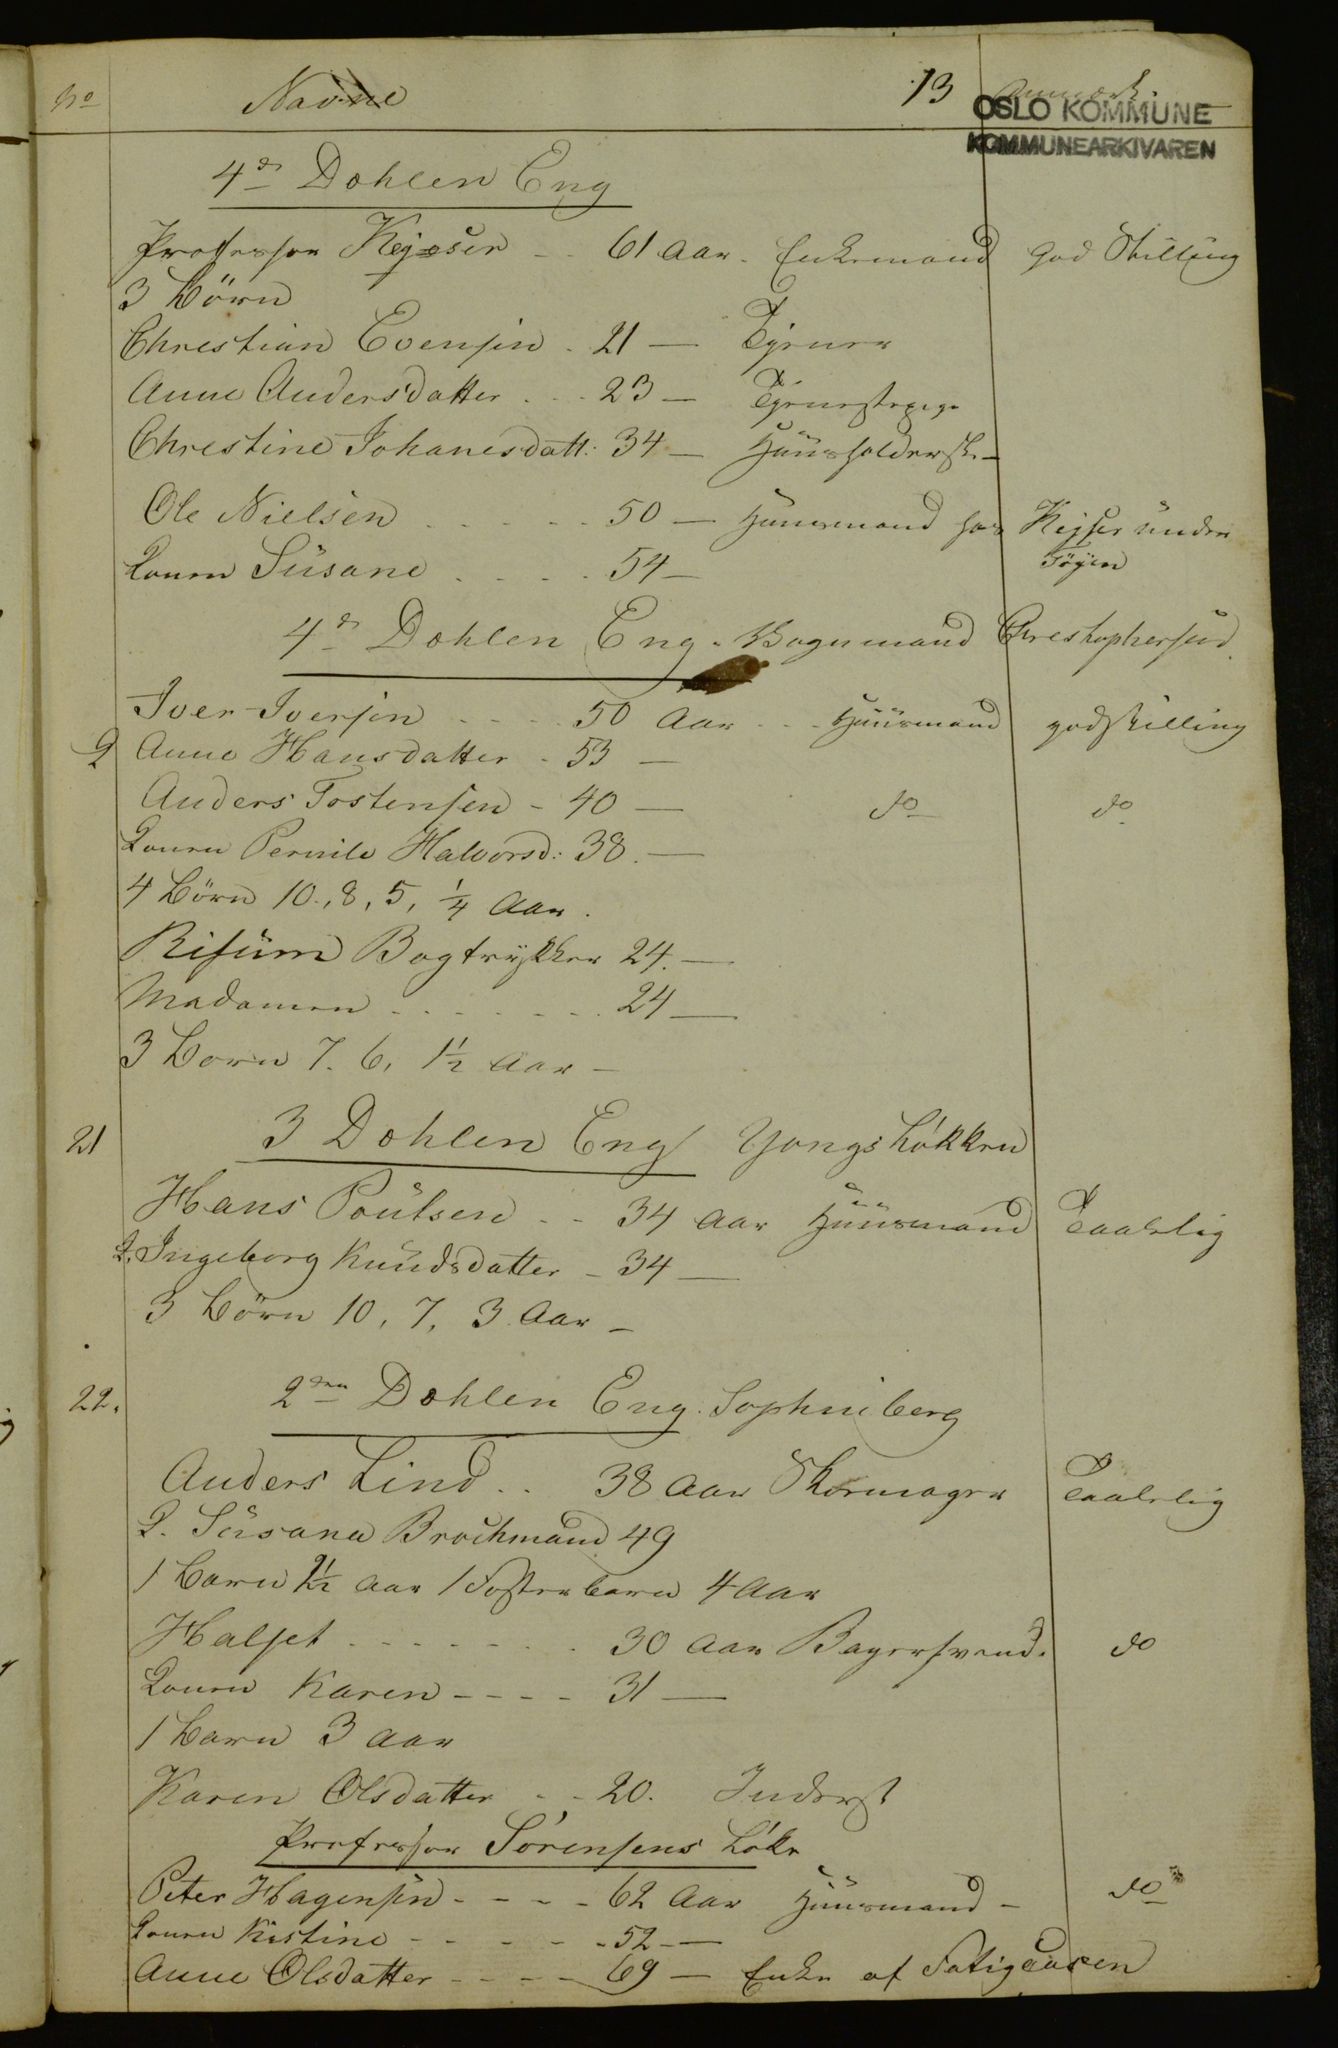 No Navne 13 Anmærk.
OSLO KOMMUNE
KOMMUNEARKIVAREN
4de Dohlen Eng
Professor Kejser - - 61 Aar - Enkemand god Stilling
3 Börn
Christian Evensen - 21 — Tjener
Anne Andersdatter - - - 23 — Tjenestepige
Chrestine Johanesdatt: 34 — Huusholderske
Ole Nielsen - - - - - 50 — Huusmand hos Kejser under
Konen Susane - - - - 54 — Töyen
4de Dohlen Eng - Vognmand Chrestophersen
Iver Iversen - - - - 50 Aar - - - Huusmand god stilling
Q Anne Hansdatter - 53 —
Anders Tostensen - 40 — do do
Konen Pernile Halvorsd: 38. —
4 Börn 10, 8, 5, 1/4 Aar.
Risum Bogtrykker 24. —
Madamen - - - - - - - 24 —
3 Born 7. 6, 1 1/2 Aar —
21 3 Dohlen Eng Yongs Lökken
Hans Poulsen - - 34 Aar Huusmand Taalelig
Q. Ingeborg Knudsdatter - 34 —
3 Börn 10, 7, 3 Aar —
22. 2den Dohlen Eng: Sophiieberg
Anders Lind - - 38 Aar Skomager Taalelig
Q. Susana Brochmand 49
1 Barn 2 1/2 Aar 1 Fosterbarn 4 Aar
Halset - - - - - - - 30 Aar Bagersvend. do
Konen Karen - - - - 31 —
1 Barn 3 Aar
Karen Olsdatter - - 20. Inderst
Professor Sörensens Lökke
Peter Hagensen - - - - 62 Aar Huusmand - do
Konen Kistine - - - - - - 52 - —
Anne Olsdatter - - - - 69 — Enke af Fatigcasen